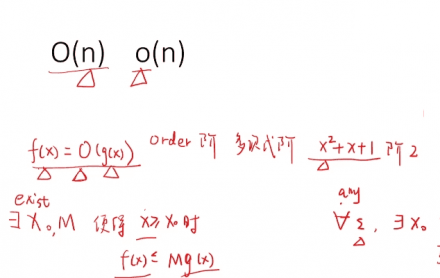 O(n) o(n)
f(x) = O(g(x)) order 阶 多项式阶 x²+x+1 阶 2
exist any
∃ X₀, M 使得 x≥x₀时 ∀ ε, ∃ X₀
f(x) ≤ Mg(x)